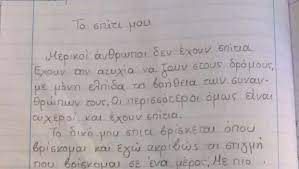 Το σπίτι μου
Μερικοί άνθρωποι δεν έχουν σπίτια.
Έχουν την ατυχία να ζουν στους δρόμους,
με μόνη ελπίδα τη βοήθεια των συναν-
θρώπων τους. Οι περισσότεροι όμως είναι
τυχεροί και έχουν σπίτια.
Το δικό μου σπίτι βρίσκεται όπου
βρίσκομαι και εγώ ακριβώς τη στιγμή
που βρίσκομαι σε ένα μέρος. Με πιο